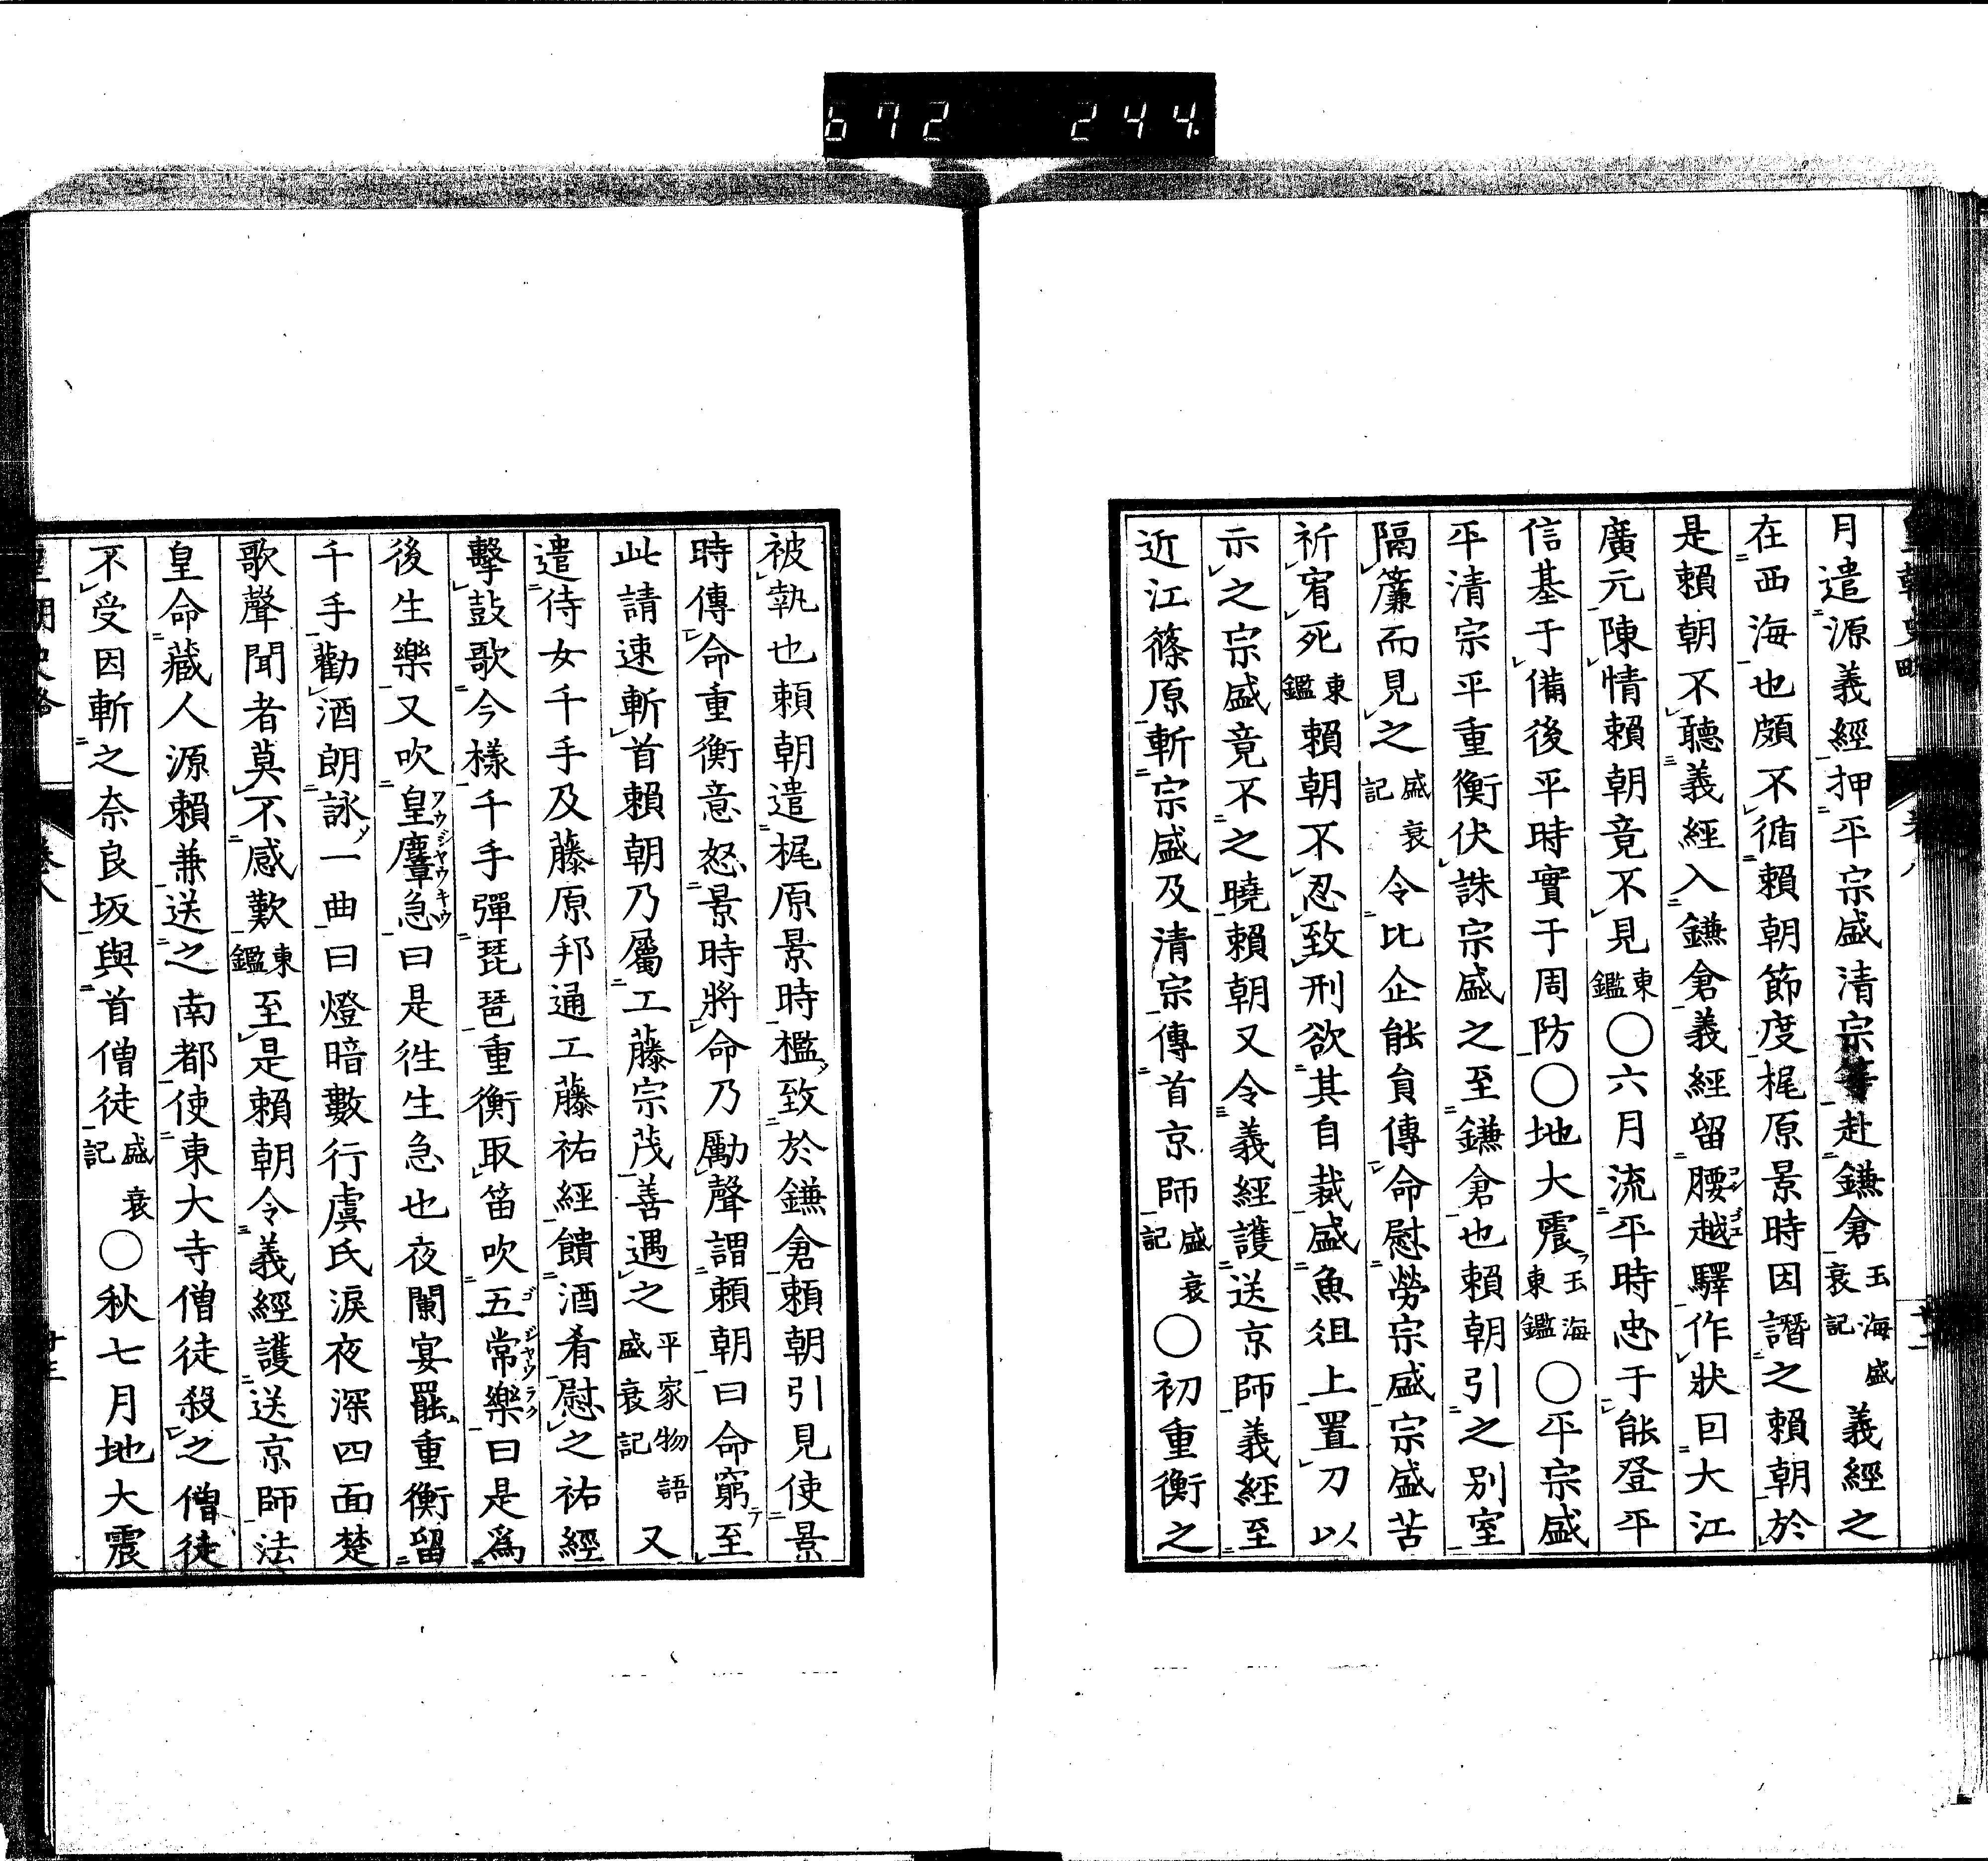 672 244
月遣源義經押平宗盛清宗等赴鎌倉玉海盛衰記義經之
在西海也頗不循賴朝節度梶原景時因譖之賴朝於
是賴朝不聽義經入鎌倉義經留腰越驛作狀囙大江
廣元陳情賴朝竟不見東鑑〇六月流平時忠于能登平
信基于備後平時實于周防〇地大震玉海東鑑〇平宗盛
平清宗平重衡伏誅宗盛之至鎌倉也賴朝引之別室
隔簾而見之盛衰記令比企能員傳命慰勞宗盛宗盛苦
祈宥死東鑑賴朝不忍致刑欲其自裁盛魚俎上置刀以
示之宗盛竟不之曉賴朝又令義經護送京師義經至
近江篠原斬宗盛及清宗傳首京師盛衰記〇初重衡之
被執也賴朝遣梶原景時檻致於鎌倉賴朝引見使景
時傳命重衡意怒景時將命乃勵聲謂賴朝曰命窮至
此請速斬首賴朝乃屬工藤宗茂善遇之平家物語盛衰記又
遣侍女千手及藤原邦通工藤祐經饋酒肴慰之祐經
擊鼓歌今樣千手彈琵琶重衡取笛吹五常樂曰是爲
後生樂又吹皇麞急曰是徃生急也夜闌宴罷重衡留
千手勸酒朗詠一曲曰燈暗數行虞氏淚夜深四面楚
歌聲聞者莫不感歎東鑑至是賴朝令義經護送京師法
皇命藏人源賴兼送之南都使東大寺僧徒殺之僧徒
不受因斬之奈良坂與首僧徒盛衰記〇秋七月地大震